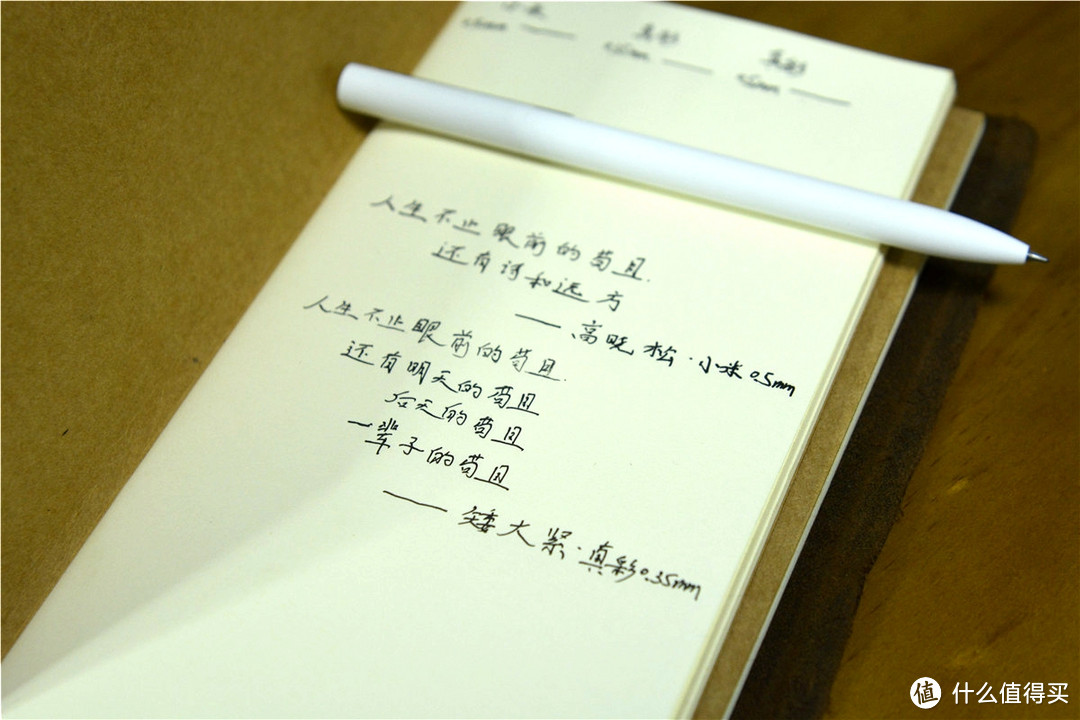 人生不止眼前的苟且.
还有诗和远方
——高晓松·小米0.5mm
人生不止眼前的苟且.
还有明天的苟且
后天的苟且
一辈子的苟且
——矮大紧·真彩0.35mm
值 什么值得买